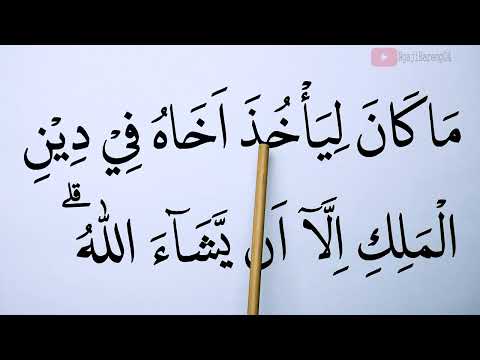 NgajiBarengGA
مَا كَانَ لِيَأْخُذَ اَخَاهُ فِيْ دِيْنِ
الْمَلِكِ اِلَّآ اَنْ يَّشَاۤءَ اللّٰهُ ۗ